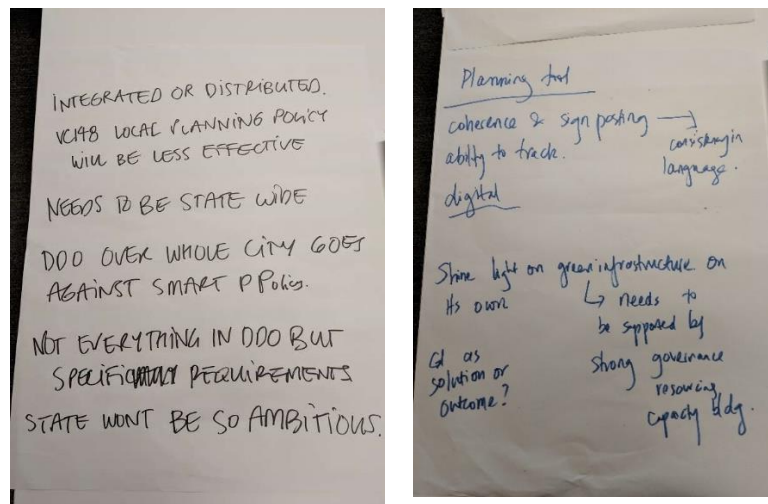 INTEGRATED OR DISTRIBUTED.
VC148 LOCAL PLANNING POLICY
WILL BE LESS EFFECTIVE
NEEDS TO BE STATE WIDE
DDO OVER WHOLE CITY GOES
AGAINST SMART P Policy.
NOT EVERYTHING IN DDO BUT
SPECIFIC REQUIREMENTS
STATE WONT BE SO AMBITIOUS.
Planning tool
coherence & sign posting →
consistency in
language.
ability to track.
digital
Shine light on green infrastructure on
its own
↳ needs to
be supported by
strong governance
resourcing
capacity bldg.
GI as
solution or
outcome?